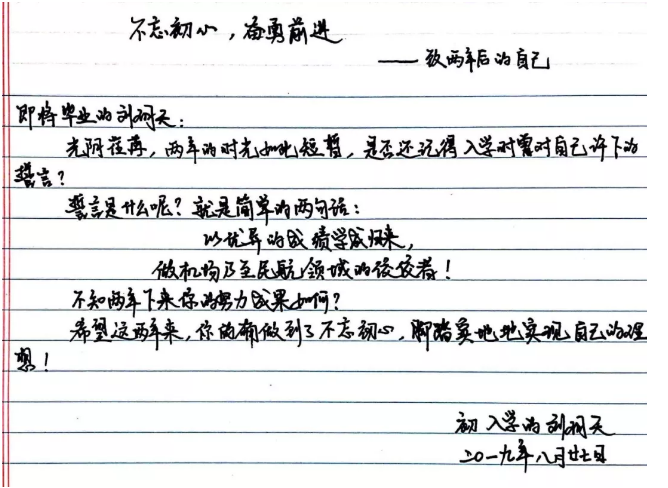 不忘初心，奋勇前进
——致两年后的自己
即将毕业的刘栩天：
光阴荏苒，两年的时光如此短暂，是否还记得入学时曾对自己许下的
誓言？
誓言是什么呢？就是简单的两句话：
以优异的成绩学成归来，
做机场乃至民航领域的佼佼者！
不知两年下来你的努力成果如何？
希望这两年来，你能够做到了不忘初心，脚踏实地地实现自己的理
想！
初入学的刘栩天
二〇一九年八月廿七日